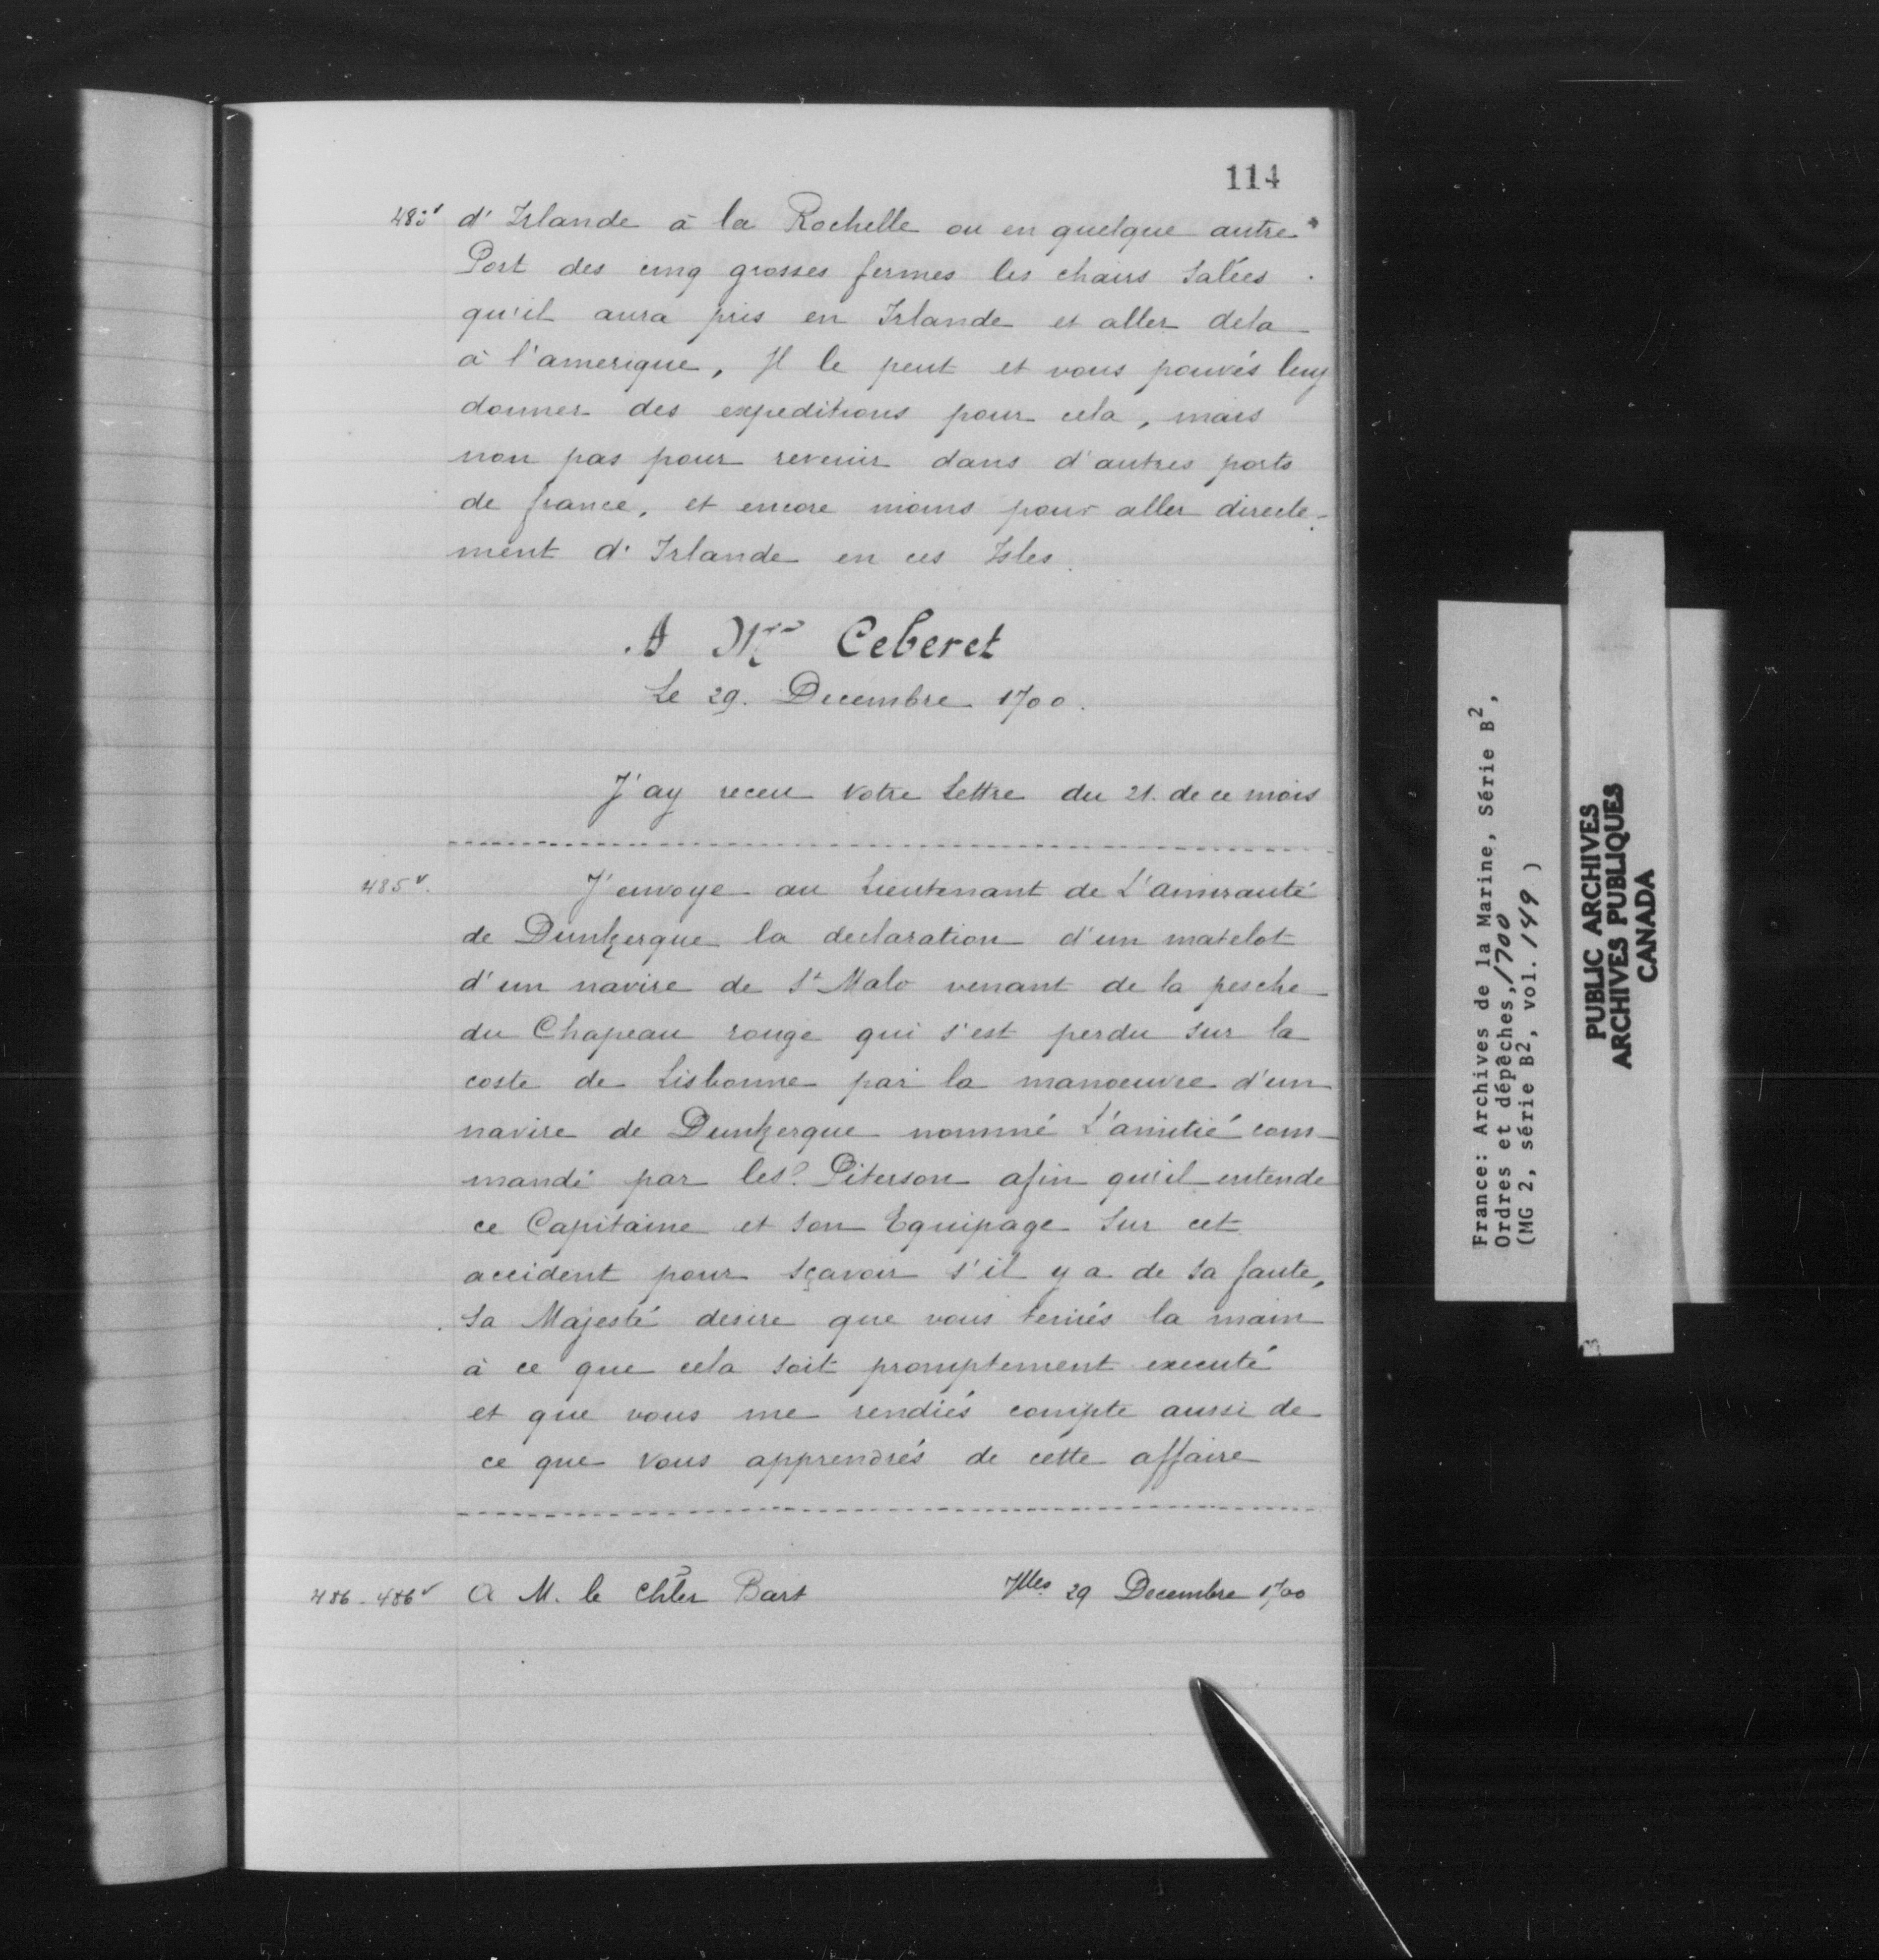 114
483v d'Irlande à la Rochelle ou en quelque autre
Port des cinq grosses fermes les chairs salées
qu'il aura pris en Irlande et aller dela
à l'amerique, Il le peut et vous pouvés luy
donner des expeditions pour cela, mais
non pas pour revenir dans d'autres ports
de france, et encore moins pour aller directe-
ment d'Irlande en ces Isles.
A Mr Ceberet
Le 29. Decembre 1700.
J'ay receu votre lettre du 21. de ce mois
485v. J'envoye au Lieutenant de L'amirauté
de Dunkerque la declaration d'un matelot
d'un navire de St Malo venant de la pesche
du Chapeau rouge qui s'est perdu sur la
coste de Lisbonne par la manoeuvre d'un
navire de Dunkerque nommé L'amitié com-
mandé par le s? Piterson afin qu'il entende
ce Capitaine et son Equipage sur cet
accident pour sçavoir s'il y a de sa faute,
Sa Majesté desire que vous teniés la main
à ce que cela soit promptement executé
et que vous me rendiés compte aussi de
ce que vous apprendrés de cette affaire
486-486v A M. le Chler Bart 29 Decembre 1700
France: Archives de la Marine, Série B2,
Ordres et dépêches, 1700
(MG 2, série B2, vol. 149)
PUBLIC ARCHIVES
ARCHIVES PUBLIQUES
CANADA